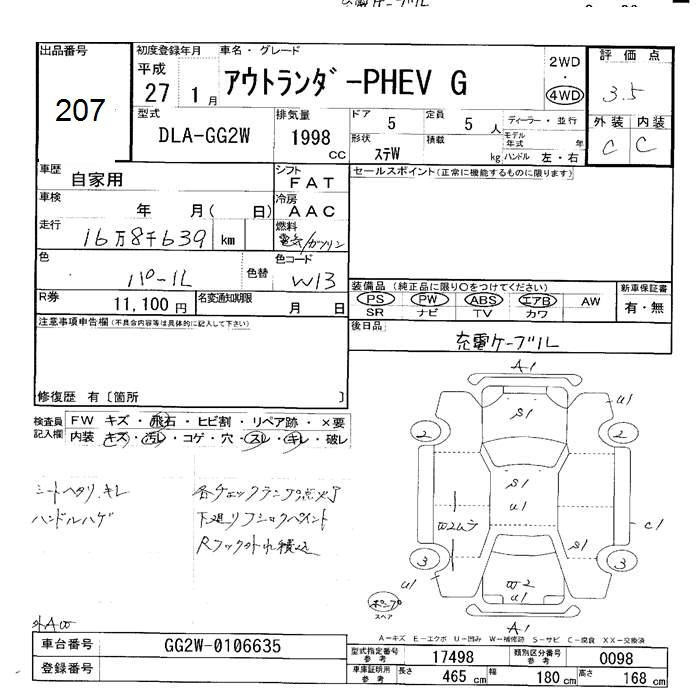 出品番号
207
初度登録年月
平成
27 1月
車名・グレード
アウトランダーPHEV G
2WD
・
4WD
評価点
3.5
外装 内装
C C
型式
DLA-GG2W
排気量
1998
CC
ドア
5
定員
5 人
ディーラー・並行
形状
ステW
積載
kg
モデル年式 年
ハンドル 左・右
車歴
自家用
シフト
FAT
セールスポイント(正常に機能するものに限ります)
車検
年 月( 日)
冷房
AAC
走行
16万8千639 km
燃料
電気/ガソリン
色
パール
色替
色コード
W13
装備品(純正品に限り○をつけてください)
PS PW ABS エアB AW
SR ナビ TV カワ
新車保証書
有・無
R券
11,100円
名変通知期限
月 日
後日品
充電ケーブル
注意事項申告欄(不具合内容等は具体的に記入して下さい)
修復歴 有〔箇所 〕
検査員記入欄
FW キズ・飛石・ヒビ割・リペア跡・×要
内装 キズ・汚レ・コゲ・穴・スレ・キレ・破レ
シートヘタリ、キレ
ハンドルハゲ
各チェックランプ点灯
下廻リフシロックペイント
Rフック外れ積込
A1
S1
U1
2
2
S1
U1
W2ムラ
C1
S1
3
3
U1
W2
U1
ポンプ
スペア
A1
A-キズ E-エクボ U-凹み W-補修跡 S-サビ C-腐食 XX-交換済
車台番号
GG2W-0106635
登録番号
型式指定番号
参考
17498
類別区分番号
参考
0098
車庫証明用
参考
長さ
465 cm
幅
180 cm
高さ
168 cm